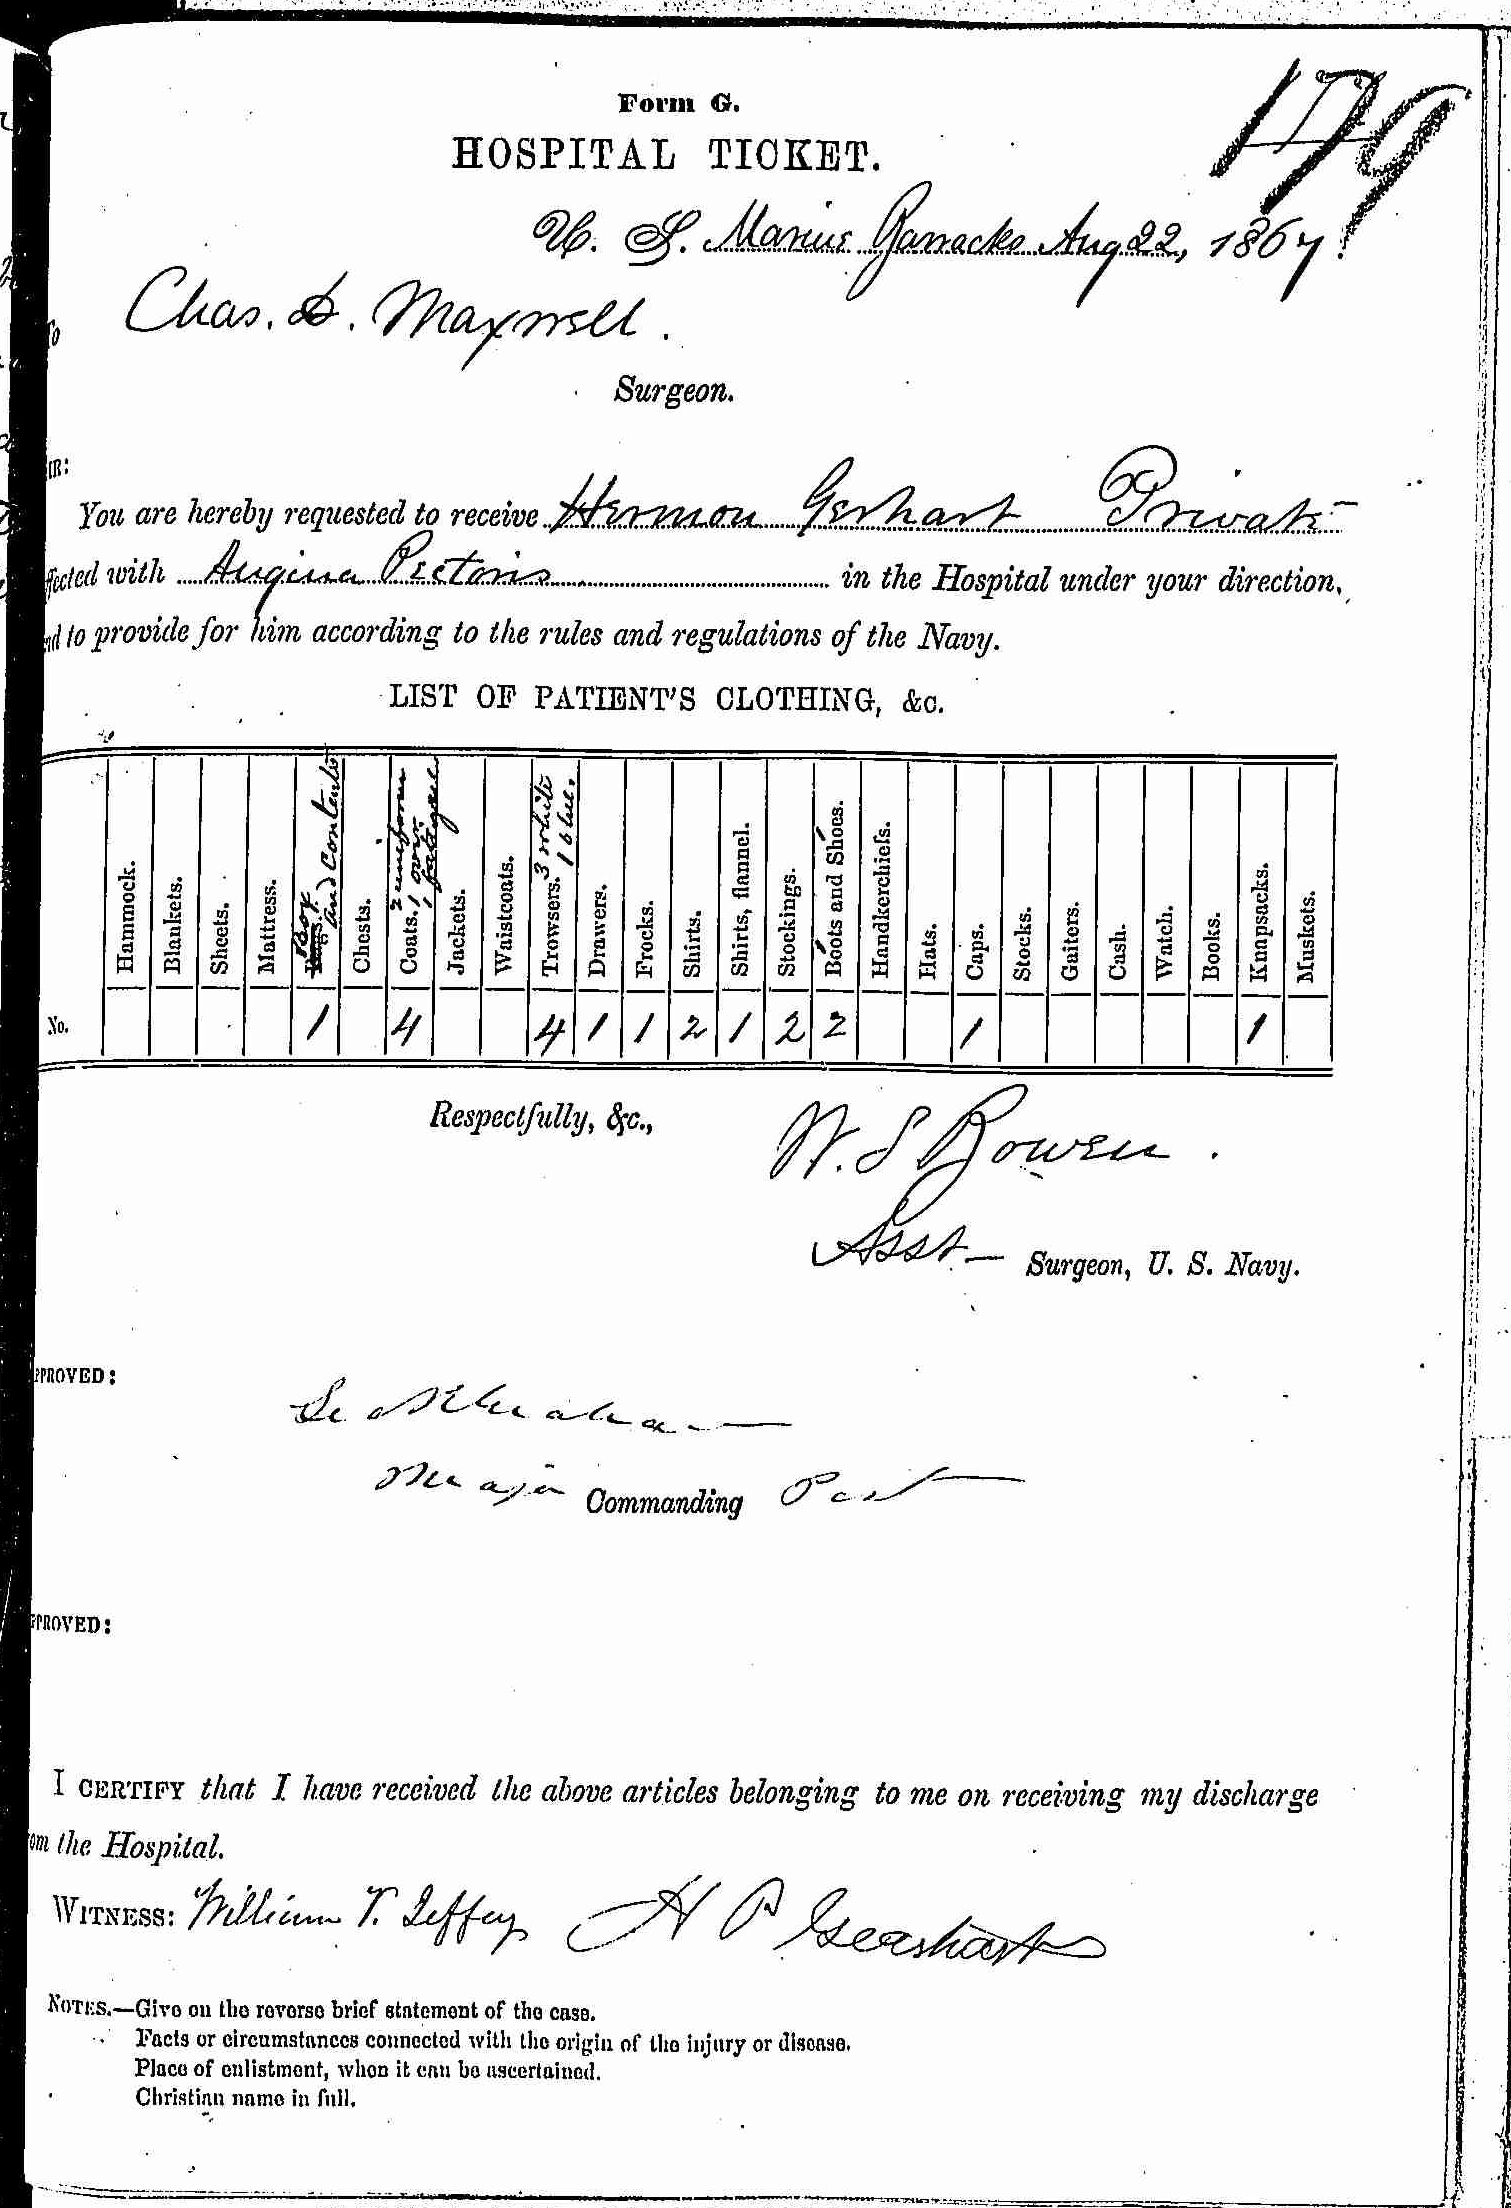 Form G.
179
HOSPITAL TICKET.
U. S. Marine Barracks Aug 22, 1867
Chas. D. Maxwell.
Surgeon.
You are hereby requested to receive Hermon Gerhart Private
with Angina Pectoris in the Hospital under your direction,
to provide for him according to the rules and regulations of the Navy.
LIST OF PATIENT'S CLOTHING, &c.
Hammock.
Blankets.
Sheets.
Mattress.
Box and Contents
Chests.
Coats. 2 uniform 1 over. 1 fatigue
Jackets.
Waistcoats.
Trowsers. 3 white 1 blue.
Drawers.
Frocks.
Shirts.
Shirts, flannel.
Stockings.
Boots and Shoes.
Handkerchiefs.
Hats.
Caps.
Stocks.
Gaiters.
Cash.
Watch.
Books.
Knapsacks.
Muskets.
No. 1 4 4 1 1 2 1 2 2 1 1
Respectfully, &c., W. S Bowen.
Asst Surgeon, U. S. Navy.
PPROVED:
Graham
Major Commanding Post
PPROVED:
I CERTIFY that I have received the above articles belonging to me on receiving my discharge
om the Hospital.
WITNESS: William T. Jeffey H P Gearhart
NOTES.—Give on the reverse brief statement of the case.
Facts or circumstances connected with the origin of the injury or disease.
Place of enlistment, when it can be ascertained.
Christian name in full.